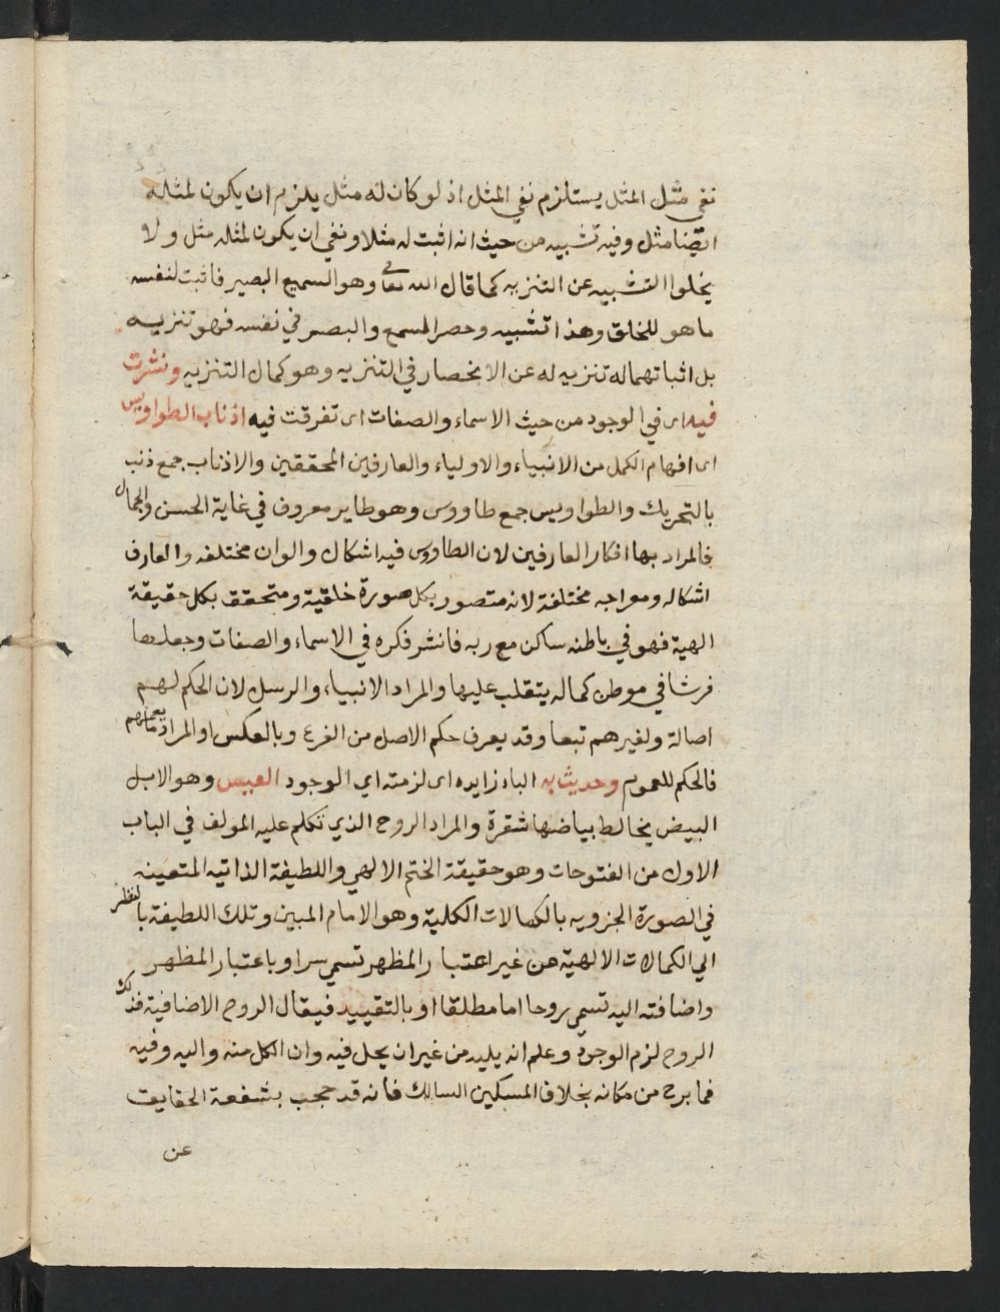 نفي مثل المثل يستلزم نفي المثل اذ لو كان له مثل يلزم ان يكون لمثله
ايضا مثل وفيه تشبيه من حيث انه اثبت له مثلا ونفي ان يكون لمثله مثل ولا
يخلوا التشبيه عن التنزيه كما قال الله تعالى وهو السميع البصير فاثبت لنفسه
ما هو للخلق وهذا تشبيه وحصر السمع والبصر في نفسه فهو تنزيه
بل اثباتهما له تنزيه له عن الانحصار في التنزيه وهو كمال التنزيه ونشرت
فيه اى في الوجود من حيث الاسماء والصفات اى تفرقت فيه اذناب الطواويس
اى افهام الكمل من الانبياء والاولياء والعارفين المحققين والاذناب جمع ذنب
بالتحريك والطواويس جمع طاووس وهو طاير معروف في غاية الحسن والجمال
فالمراد بها افكار العارفين لان الطاوس فيه اشكال والوان مختلفه والعارف
اشكاله ومواجه مختلفة لانه متصور بكل صورة خلقية ومتحقق بكل حقيقة
الهية فهو في باطنه ساكن مع ربه فانشر فكره في الاسماء والصفات وجعلها
فرشا في موطن كماله يتقلب عليها والمراد الانبياء والرسل لان الحكم لهم
اصالة ولغيرهم تبعا وقد يعرف حكم الاصل من الفرع وبالعكس او المراد ما يعمهم
فالحكم للعموم وحديث به الباء زايده اى لزمته اي الوجود العيس وهو الابل
البيض يخالط بياضها شقرة والمراد الروح الذي تكلم عليه المولف في الباب
الاول من الفتوحات وهو حقيقة الختم الالهي واللطيفة الذاتيه المتعينه
في الصورة الجزويه بالكمالات الكلية وهو الامام المبين وتلك اللطيفة بالنظر
الي الكمالات الالهية من غير اعتبار المظهر تسمي سرا وباعتبار المظهر
واضافته اليه تسمي روحا اما مطلقا او بالتقييد فيقال الروح الاضافية فذلك
الروح لزم الوجود وعلم انه يليه من غير ان يحل فيه وان الكل منه واليه وفيه
فما برح من مكانه بخلاف المسكين السالك فانه قد حجب بشفعة الحقايق
عن